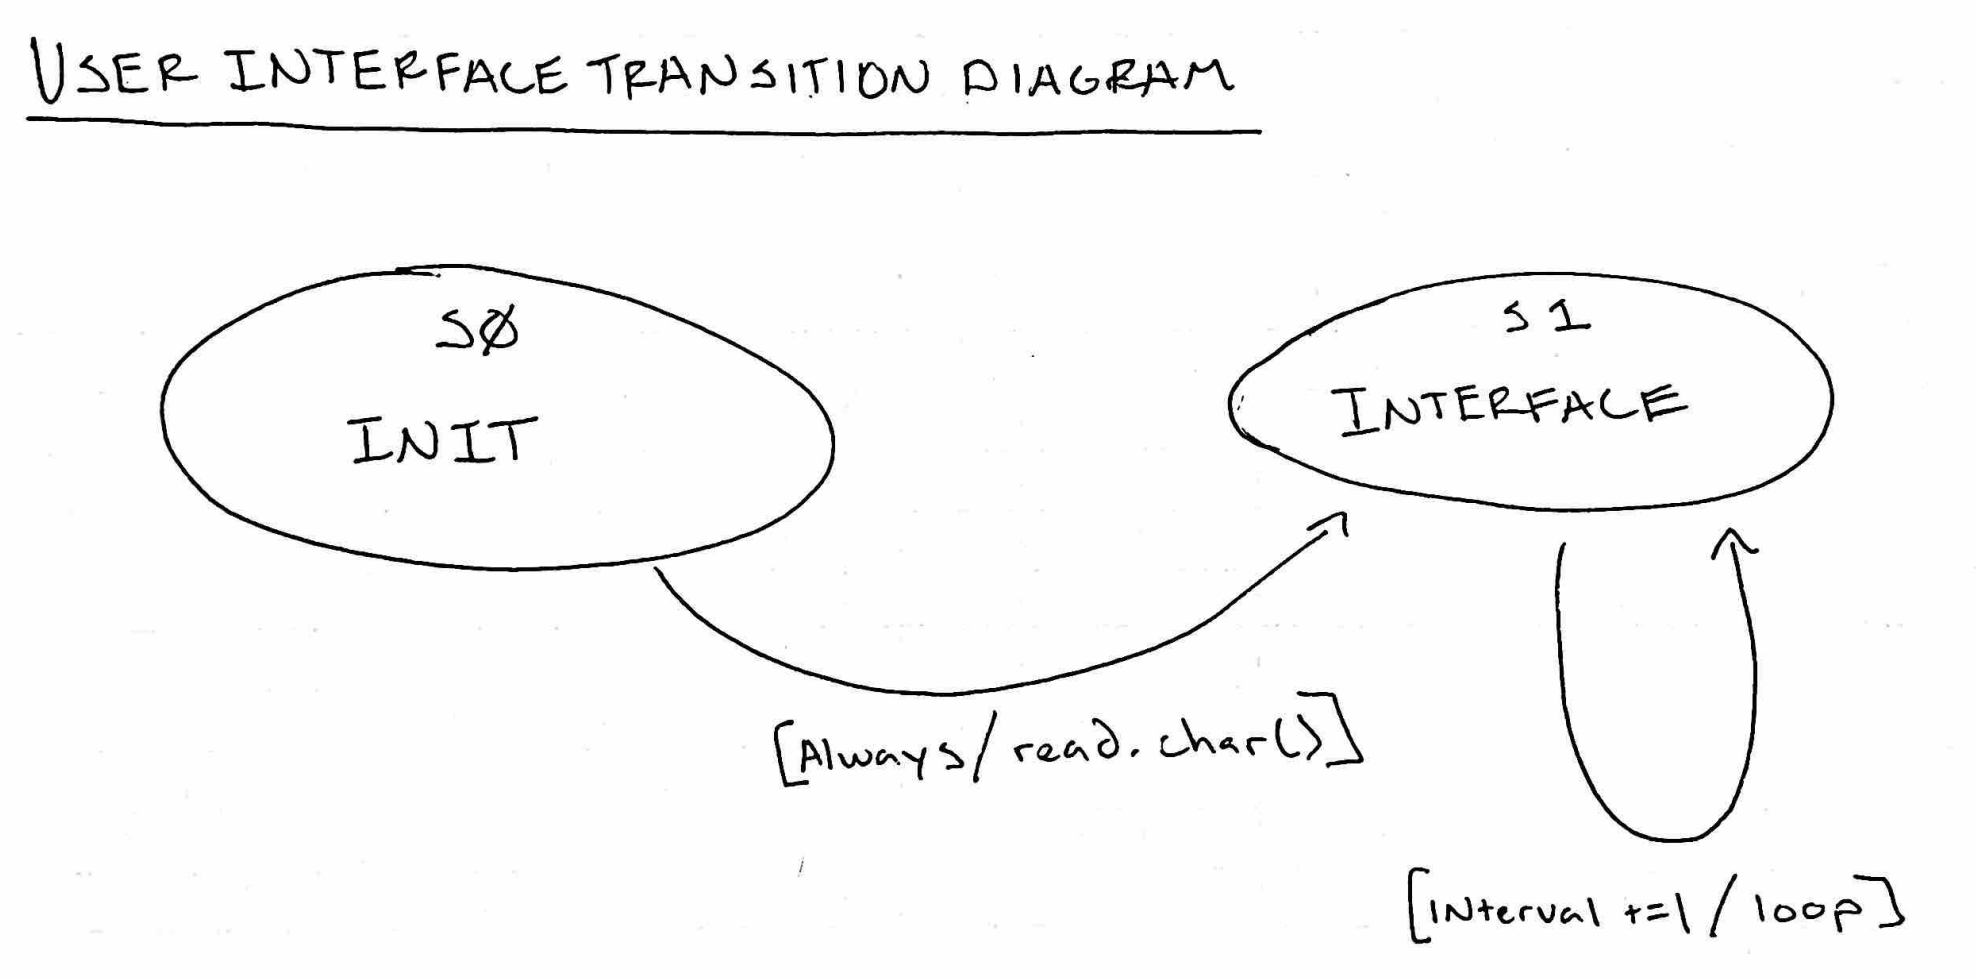 USER INTERFACE TRANSITION DIAGRAM
SØ
INIT
S1
INTERFACE
[Always/read.char()]
[INterval +=1/loop]